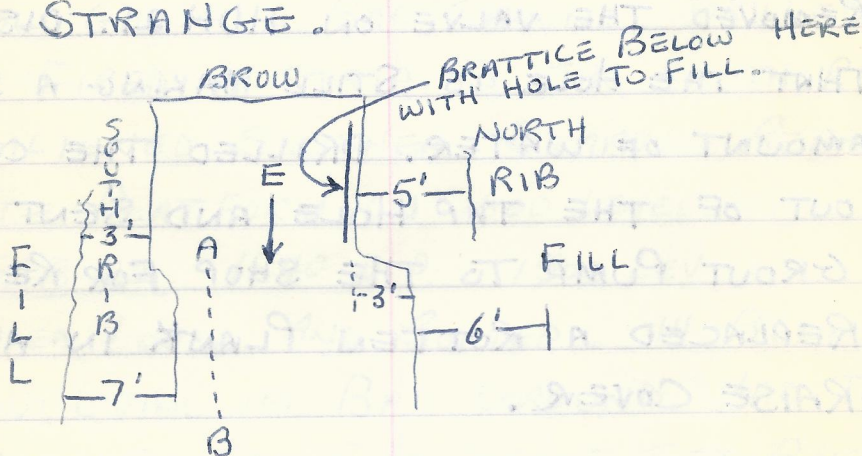 STRANGE.
BROW
BRATTICE BELOW HERE
WITH HOLE TO FILL.
NORTH
RIB
5'
SOUTH
RIB
3'
E
A
FILL
FILL
3'
6'
7'
B